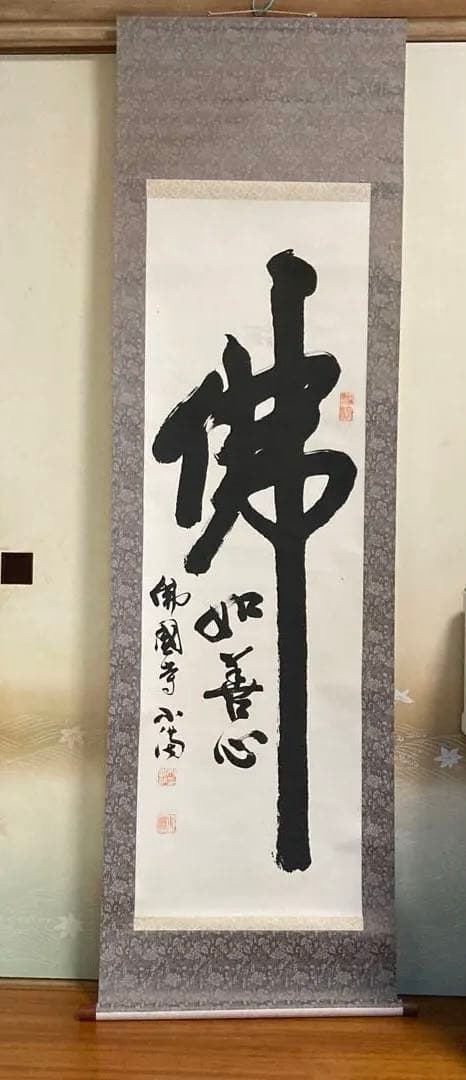 佛
如善心
佛國寺